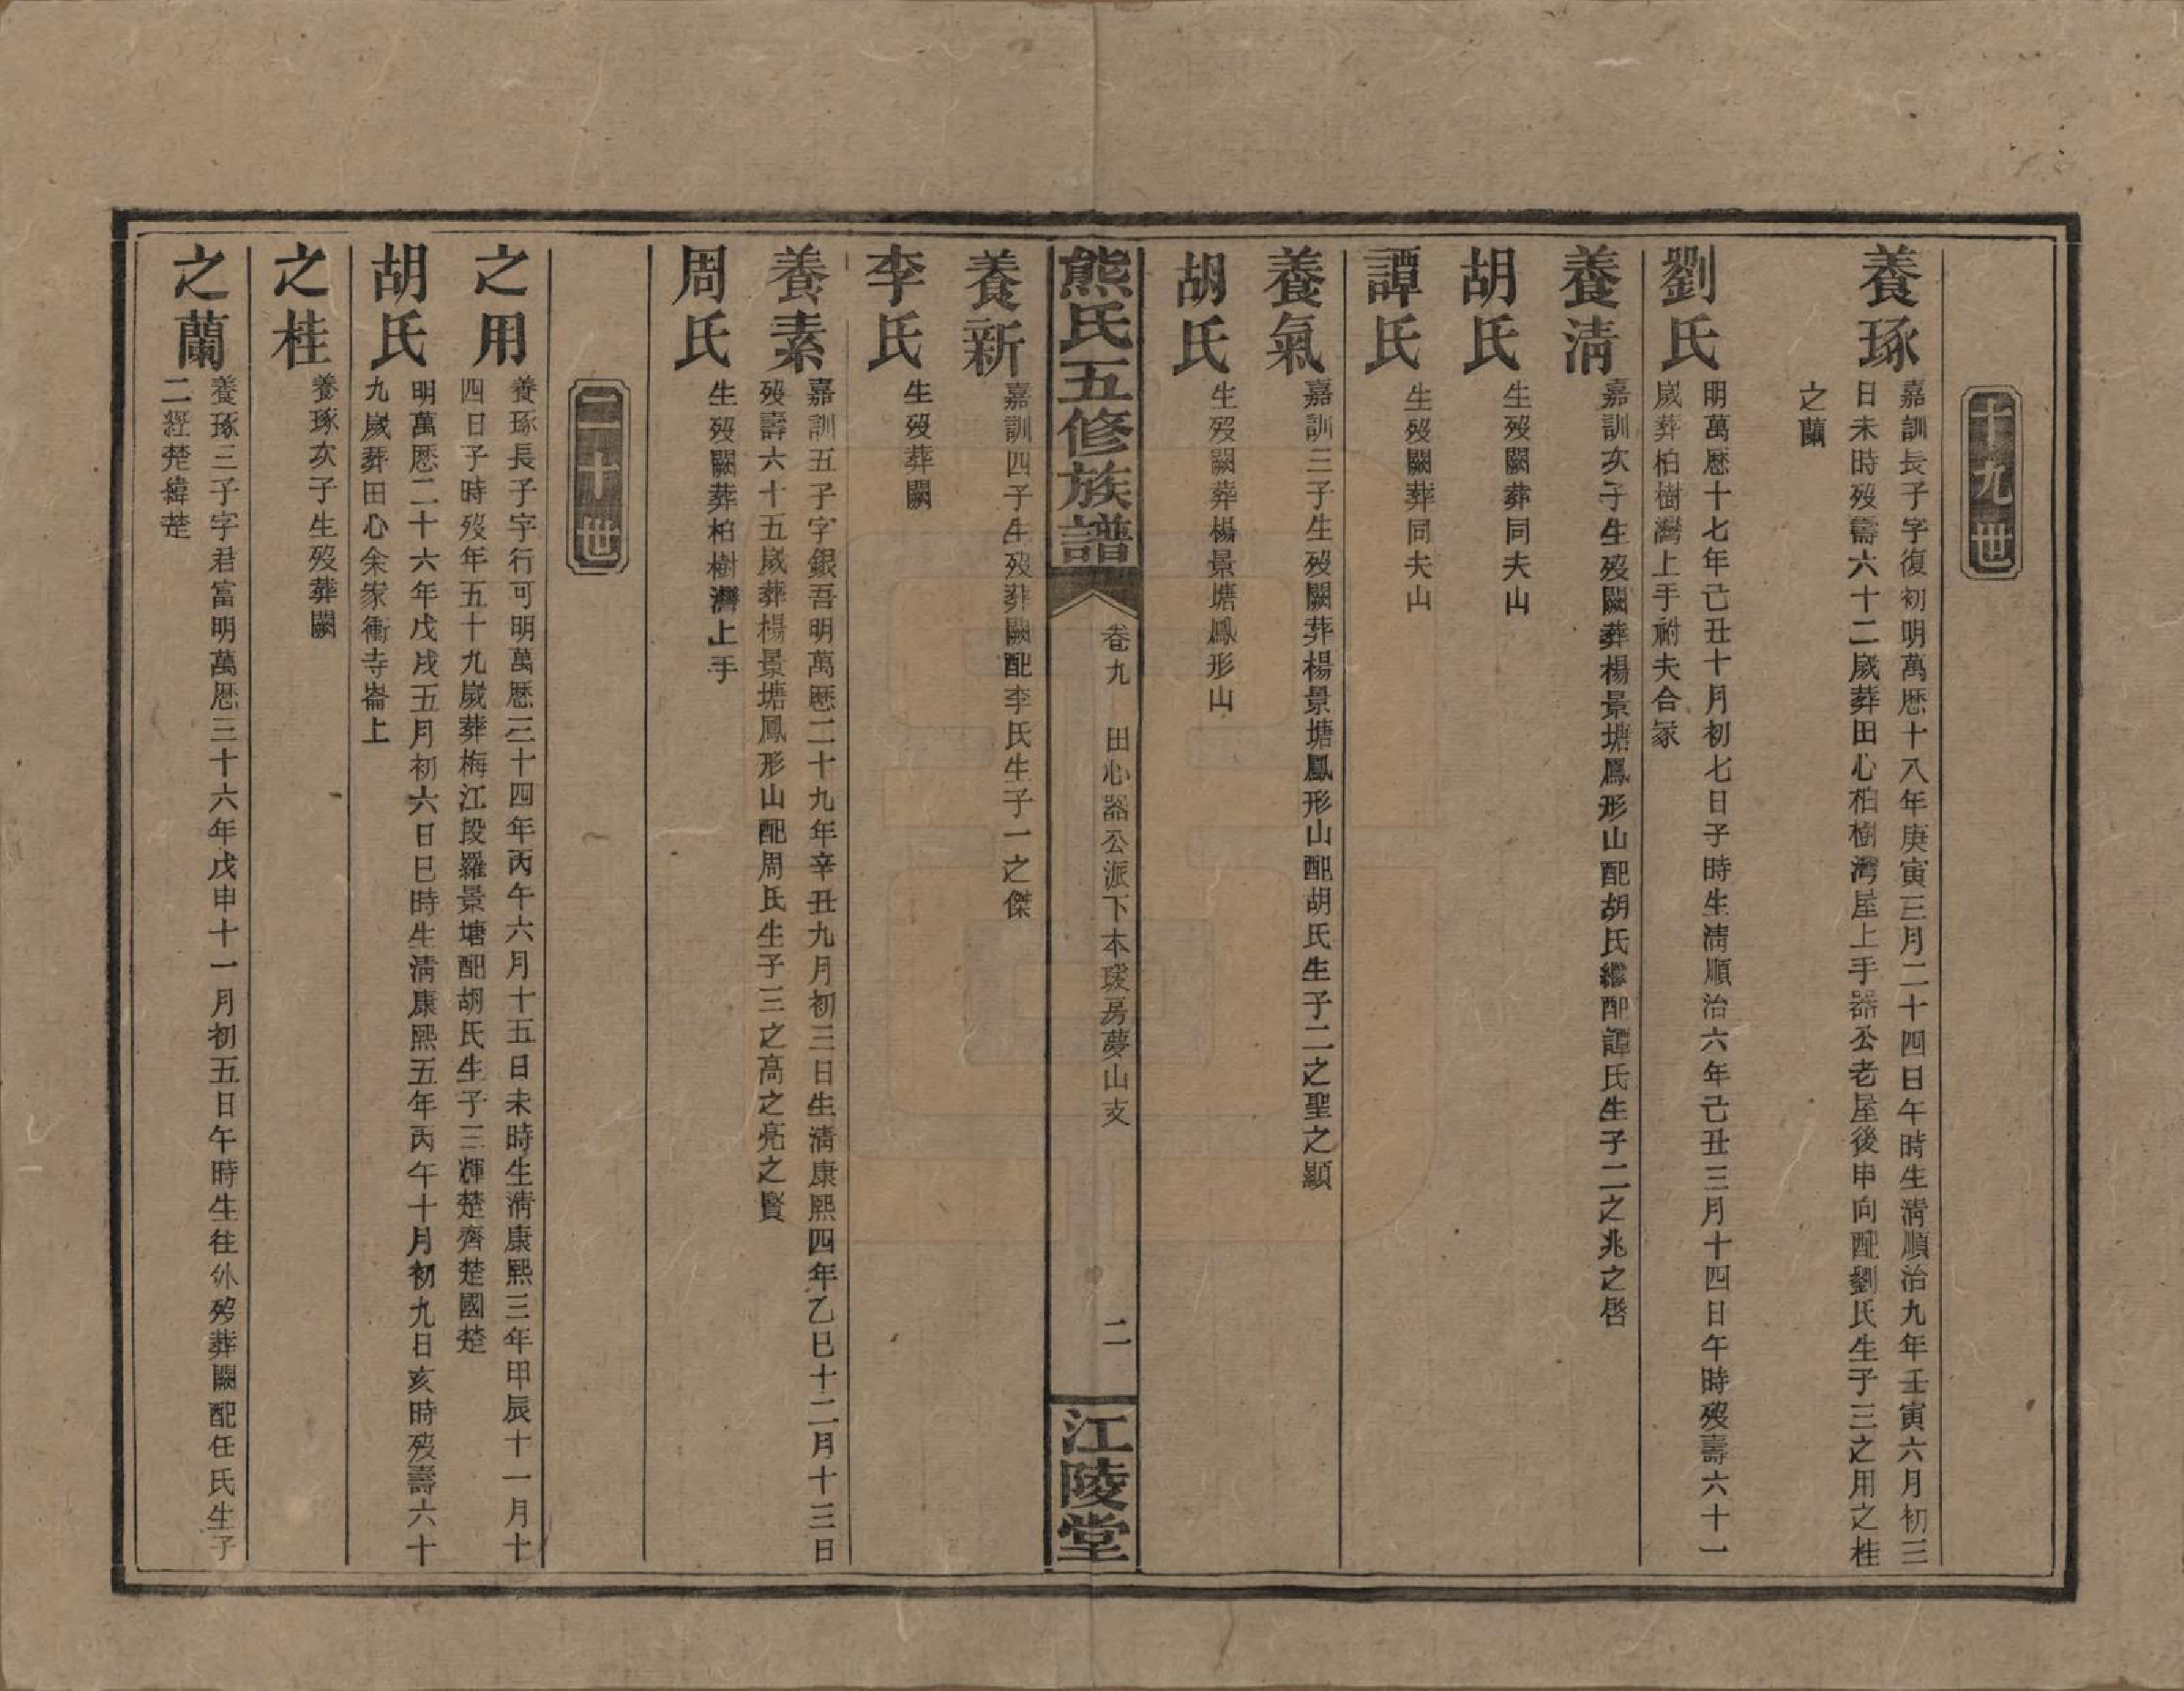 十九世
養琢
嘉訓長子字復初明萬厯十八年庚寅三月二十四日午時生清順治九年壬寅六月初三
日未時歿壽六十二歲葬田心柏樹灣屋上手器公老屋後申向配劉氏生子三之用之桂
之蘭
劉氏
明萬厯十七年己丑十月初七日子時生清順治六年己丑三月十四日午時歿壽六十一
歲葬柏樹灣上手祔夫合冢
養清
嘉訓次子生歿闕葬楊景塘鳳形山配胡氏繼配譚氏生子二之兆之啓
胡氏
生歿闕葬同夫山
譚氏
生歿闕葬同夫山
養氣
嘉訓三子生歿闕葬楊景塘鳳形山配胡氏生子二之聖之顯
胡氏
生歿闕葬楊景塘鳳形山
熊氏五修族譜
卷九 田心器公派下本瑗房夢山支
二
江陵堂
養新
嘉訓四子生歿葬闕配李氏生子一之傑
李氏
生歿葬闕
養素
嘉訓五子字銀吾明萬厯二十九年辛丑九月初三日生清康熙四年乙巳十二月十三日
歿壽六十五歲葬楊景塘鳳形山配周氏生子三之高之亮之賢
周氏
生歿闕葬柏樹灣上手
二十世
之用
養琢長子字行可明萬厯三十四年丙午六月十五日未時生清康熙三年甲辰十一月十
四日子時歿年五十九歲葬梅江段羅景塘配胡氏生子三輝楚齊楚國楚
胡氏
明萬厯二十六年戊戌五月初六日巳時生清康熙五年丙午十月初九日亥時歿壽六十
九歲葬田心余家衝寺崙上
之桂
養琢次子生歿葬闕
之蘭
養琢三子字君富明萬厯三十六年戊申十一月初五日午時生往外歿葬闕配任氏生子
二經楚緯楚